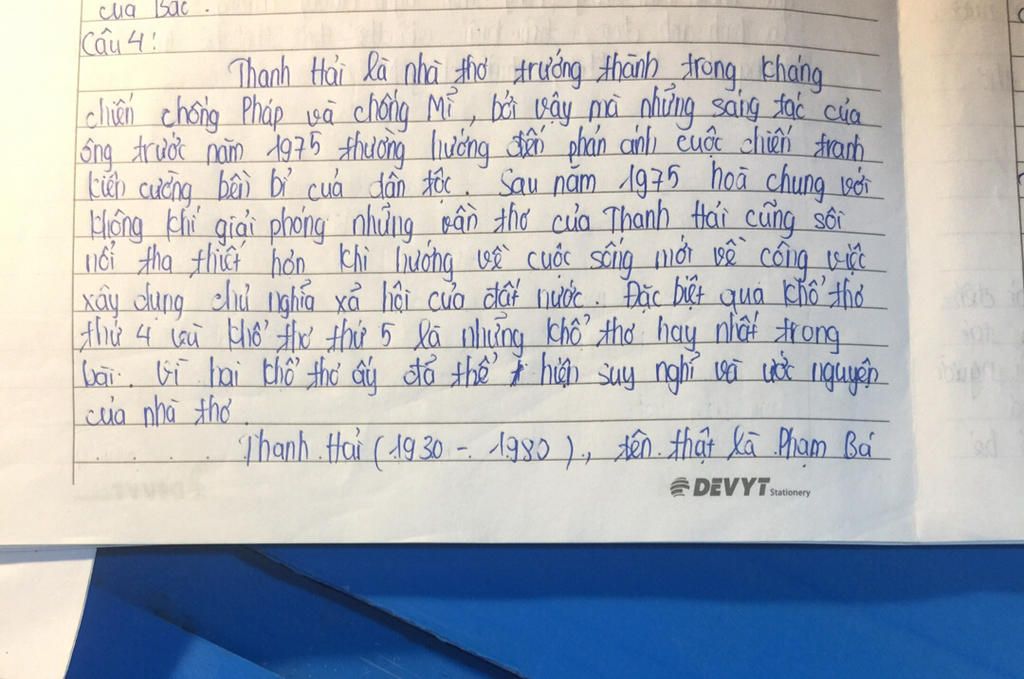 của Bác.
Câu 4:
Thanh Hải là nhà thơ trưởng thành trong kháng
chiến chống Pháp và chống Mĩ, bởi vậy mà những sáng tác của
ông trước năm 1975 thường hướng đến phản ánh cuộc chiến tranh
kiên cường bền bỉ của dân tộc. Sau năm 1975 hoà chung với
không khí giải phóng những vần thơ của Thanh Hải cũng sôi
nổi tha thiết hơn khi hướng về cuộc sống mới về công việc
xây dựng chủ nghĩa xả hội của đất nước. Đặc biệt qua khổ thơ
thứ 4 và khổ thơ thứ 5 là những khổ thơ hay nhất trong
bài. Vì hai khổ thơ ấy đả thể hiện suy nghỉ và ước nguyện
của nhà thơ.
Thanh Hải (1930 - 1980), tên thật là Phạm Bá
DEVYT Stationery